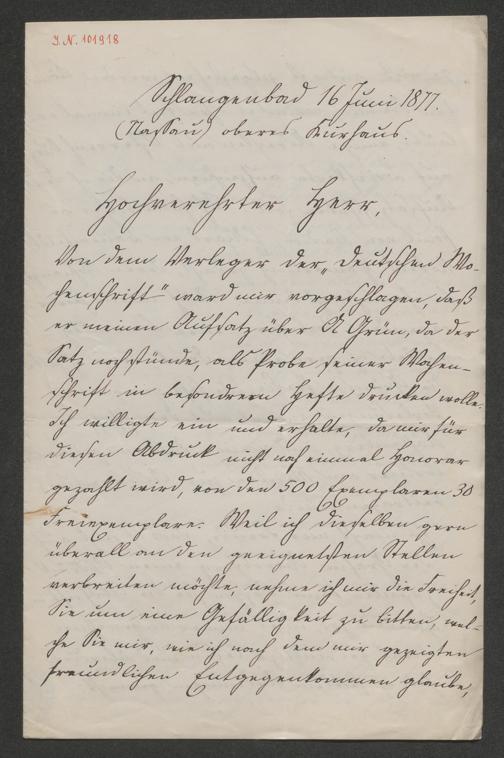 J.N. 101918
Schlangenbad 16 Juni 1877.
(Nassau) oberes Kurhaus.
Hochverehrter Herr,
Von dem Verleger der „Deutschen Wo-
chenschrift" ward mir vorgeschlagen, daß
er meinen Aufsatz über A Grün, da der
Satz noch stünde, als Probe seiner Wochen-
schrift in besondrem Hefte drucken wolle.
Ich willigte ein und erhalte, da mir für
diesen Abdruck nicht noch einmal Honorar
gezahlt wird, von den 500 Exemplaren 30
Freiexemplare. Weil ich dieselben gern
überall an den geeignetsten Stellen
verbreiten möchte, nehme ich mir die Freiheit,
Sie um eine Gefälligkeit zu bitten, wel-
che Sie mir, wie ich nach dem mir gezeigten
freundlichen Entgegenkommen glaube,